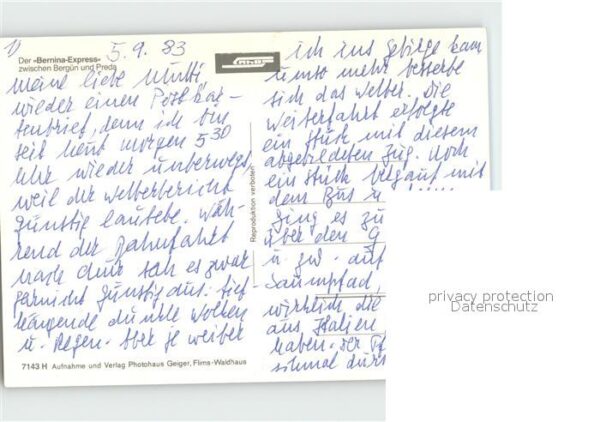 1)
5.9.83
Der «Bernina-Express»
zwischen Bergün und Preda
meine liebe Mutti,
wieder einen Postkar-
tenbrief, denn ich bin
seit heut morgen 5 30
Uhr wieder unterwegs,
weil der Wetterbericht
günstig lautete. Wäh-
rend der Bahnfahrt
nach Chur sah es zwar
garnicht günstig aus. Tief-
hängende dunkle Wolken
u. Regen. Aber je weiter
7143 H Aufnahme und Verlag Photohaus Geiger, Flims-Waldhaus
Reproduktion verboten
ich ins Gebirge kam
umso mehr besserte
sich das Wetter. Die
Weiterfahrt erfolgte
ein Stück mit diesem
abgebildeten Zug. Noch
ein Stück bergauf mit
dem Bus u.
ging es zu
über den
u. zw. auf
Saumpfad,
wirklich die
aus Italien
haben. Der
schmal durch
privacy protection
Datenschutz